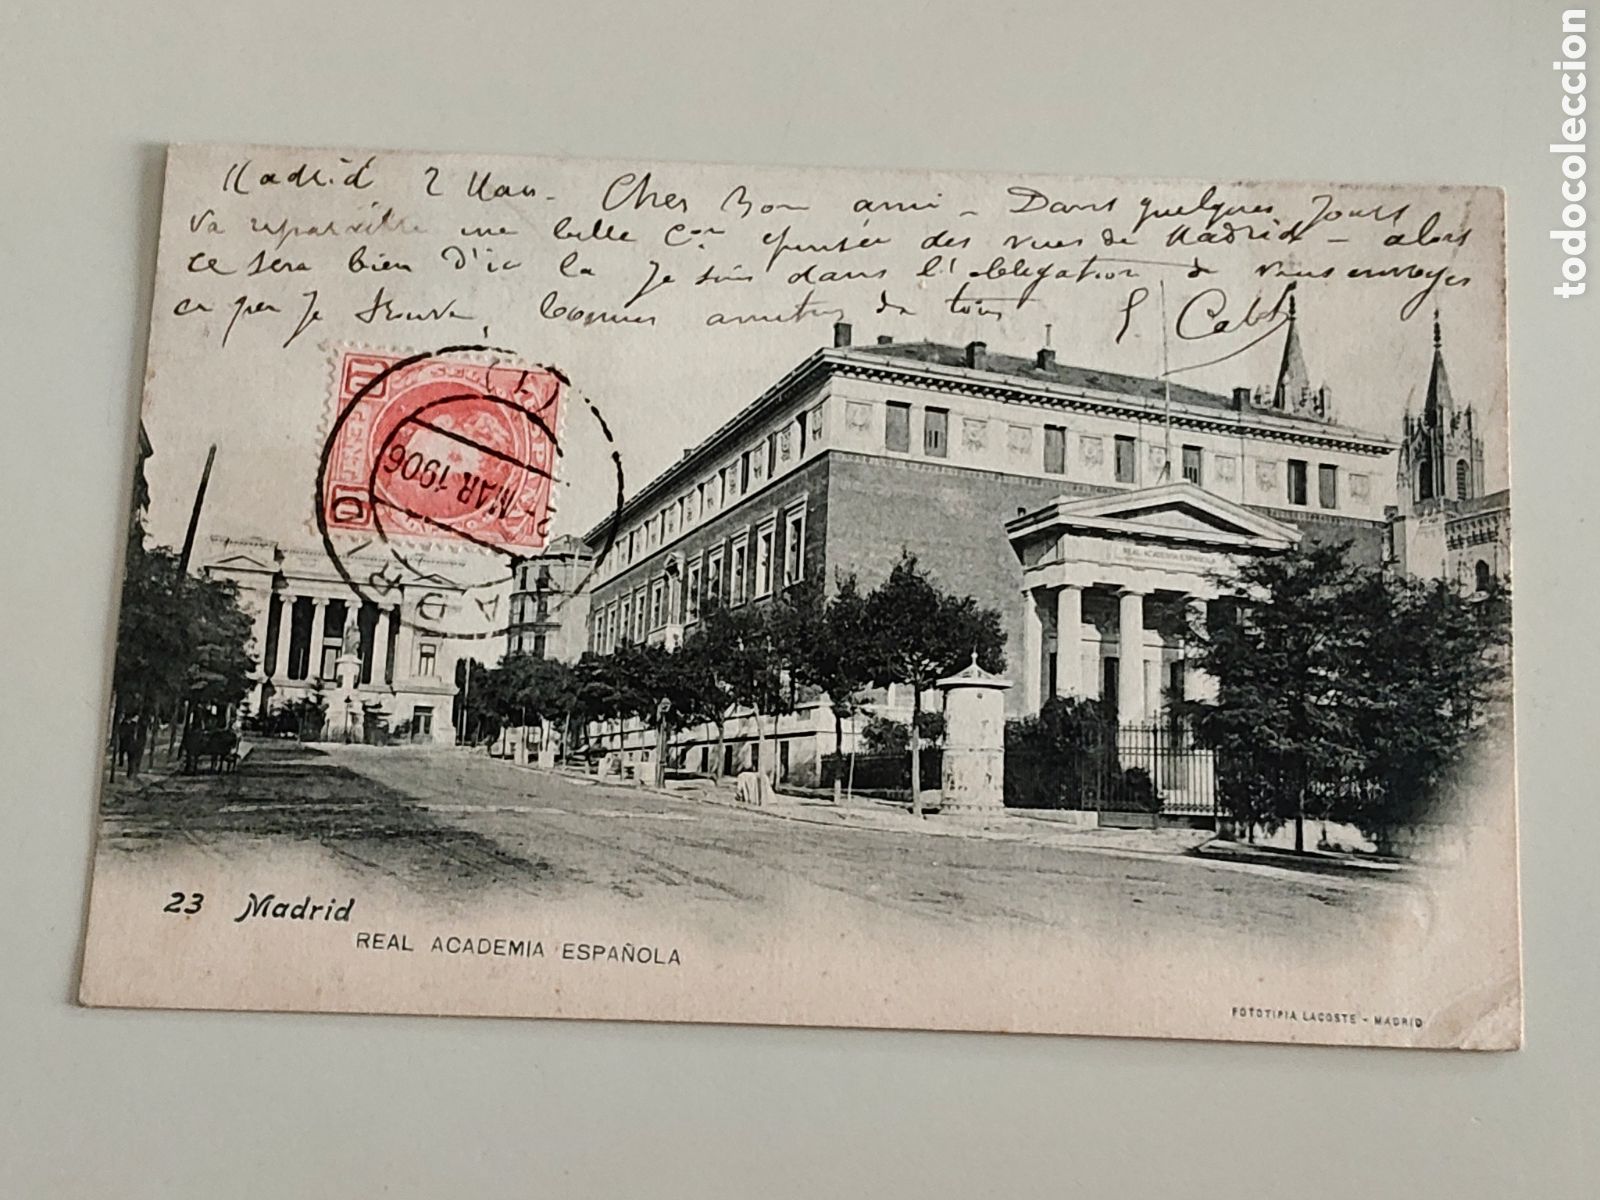 Madrid 2 Mars. Cher Bon ami – Dans quelques jours
va reparaitre une belle Con épuisée des vues de Madrid – alors
ce sera bien d'ic la Je suis dans l'obligation de vous envoyer
ce que Je trouve, bonnes amitiés de tous
10
CORREOS
2- MAR 1906
MADRID
REAL ACADEMIA ESPAÑOLA
23 Madrid
REAL ACADEMIA ESPAÑOLA
FOTOTIPIA LACOSTE – MADRID
todocoleccion